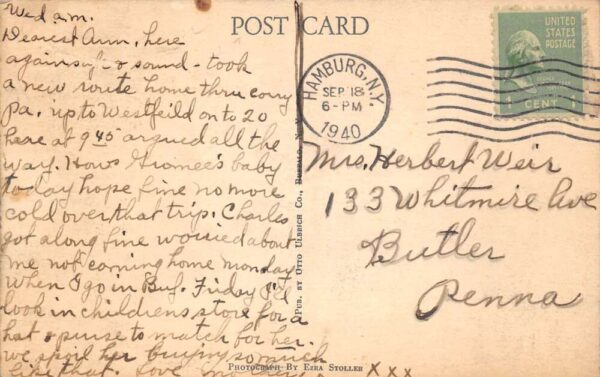 POST CARD
UNITED
STATES
POSTAGE
1 CENT 1
HAMBURG, N.Y.
SEP 18
6-PM
1940
Wed a.m.
Dearest Ann, here
again safe & sound - took
a new route home thru corry
Pa. up to Westfeild on to 20
here at 9 45 argued all the
way. Hows Gromee's baby
today hope fine no more
cold over that trip. Charles
got along fine worried about
me not coming home monday
when I go in Buf. Friday I'll
look in childrens store for a
hat & purse to match for her.
we spoil her buying so much
like that. Love
X X X
Mrs. Herbert Weir
133 Whitmire Ave
Butler
Penna
PUB. BY OTTO ULBRICH CO., BUFFALO, N. Y.
PHOTOGRAPH BY EZRA STOLLER